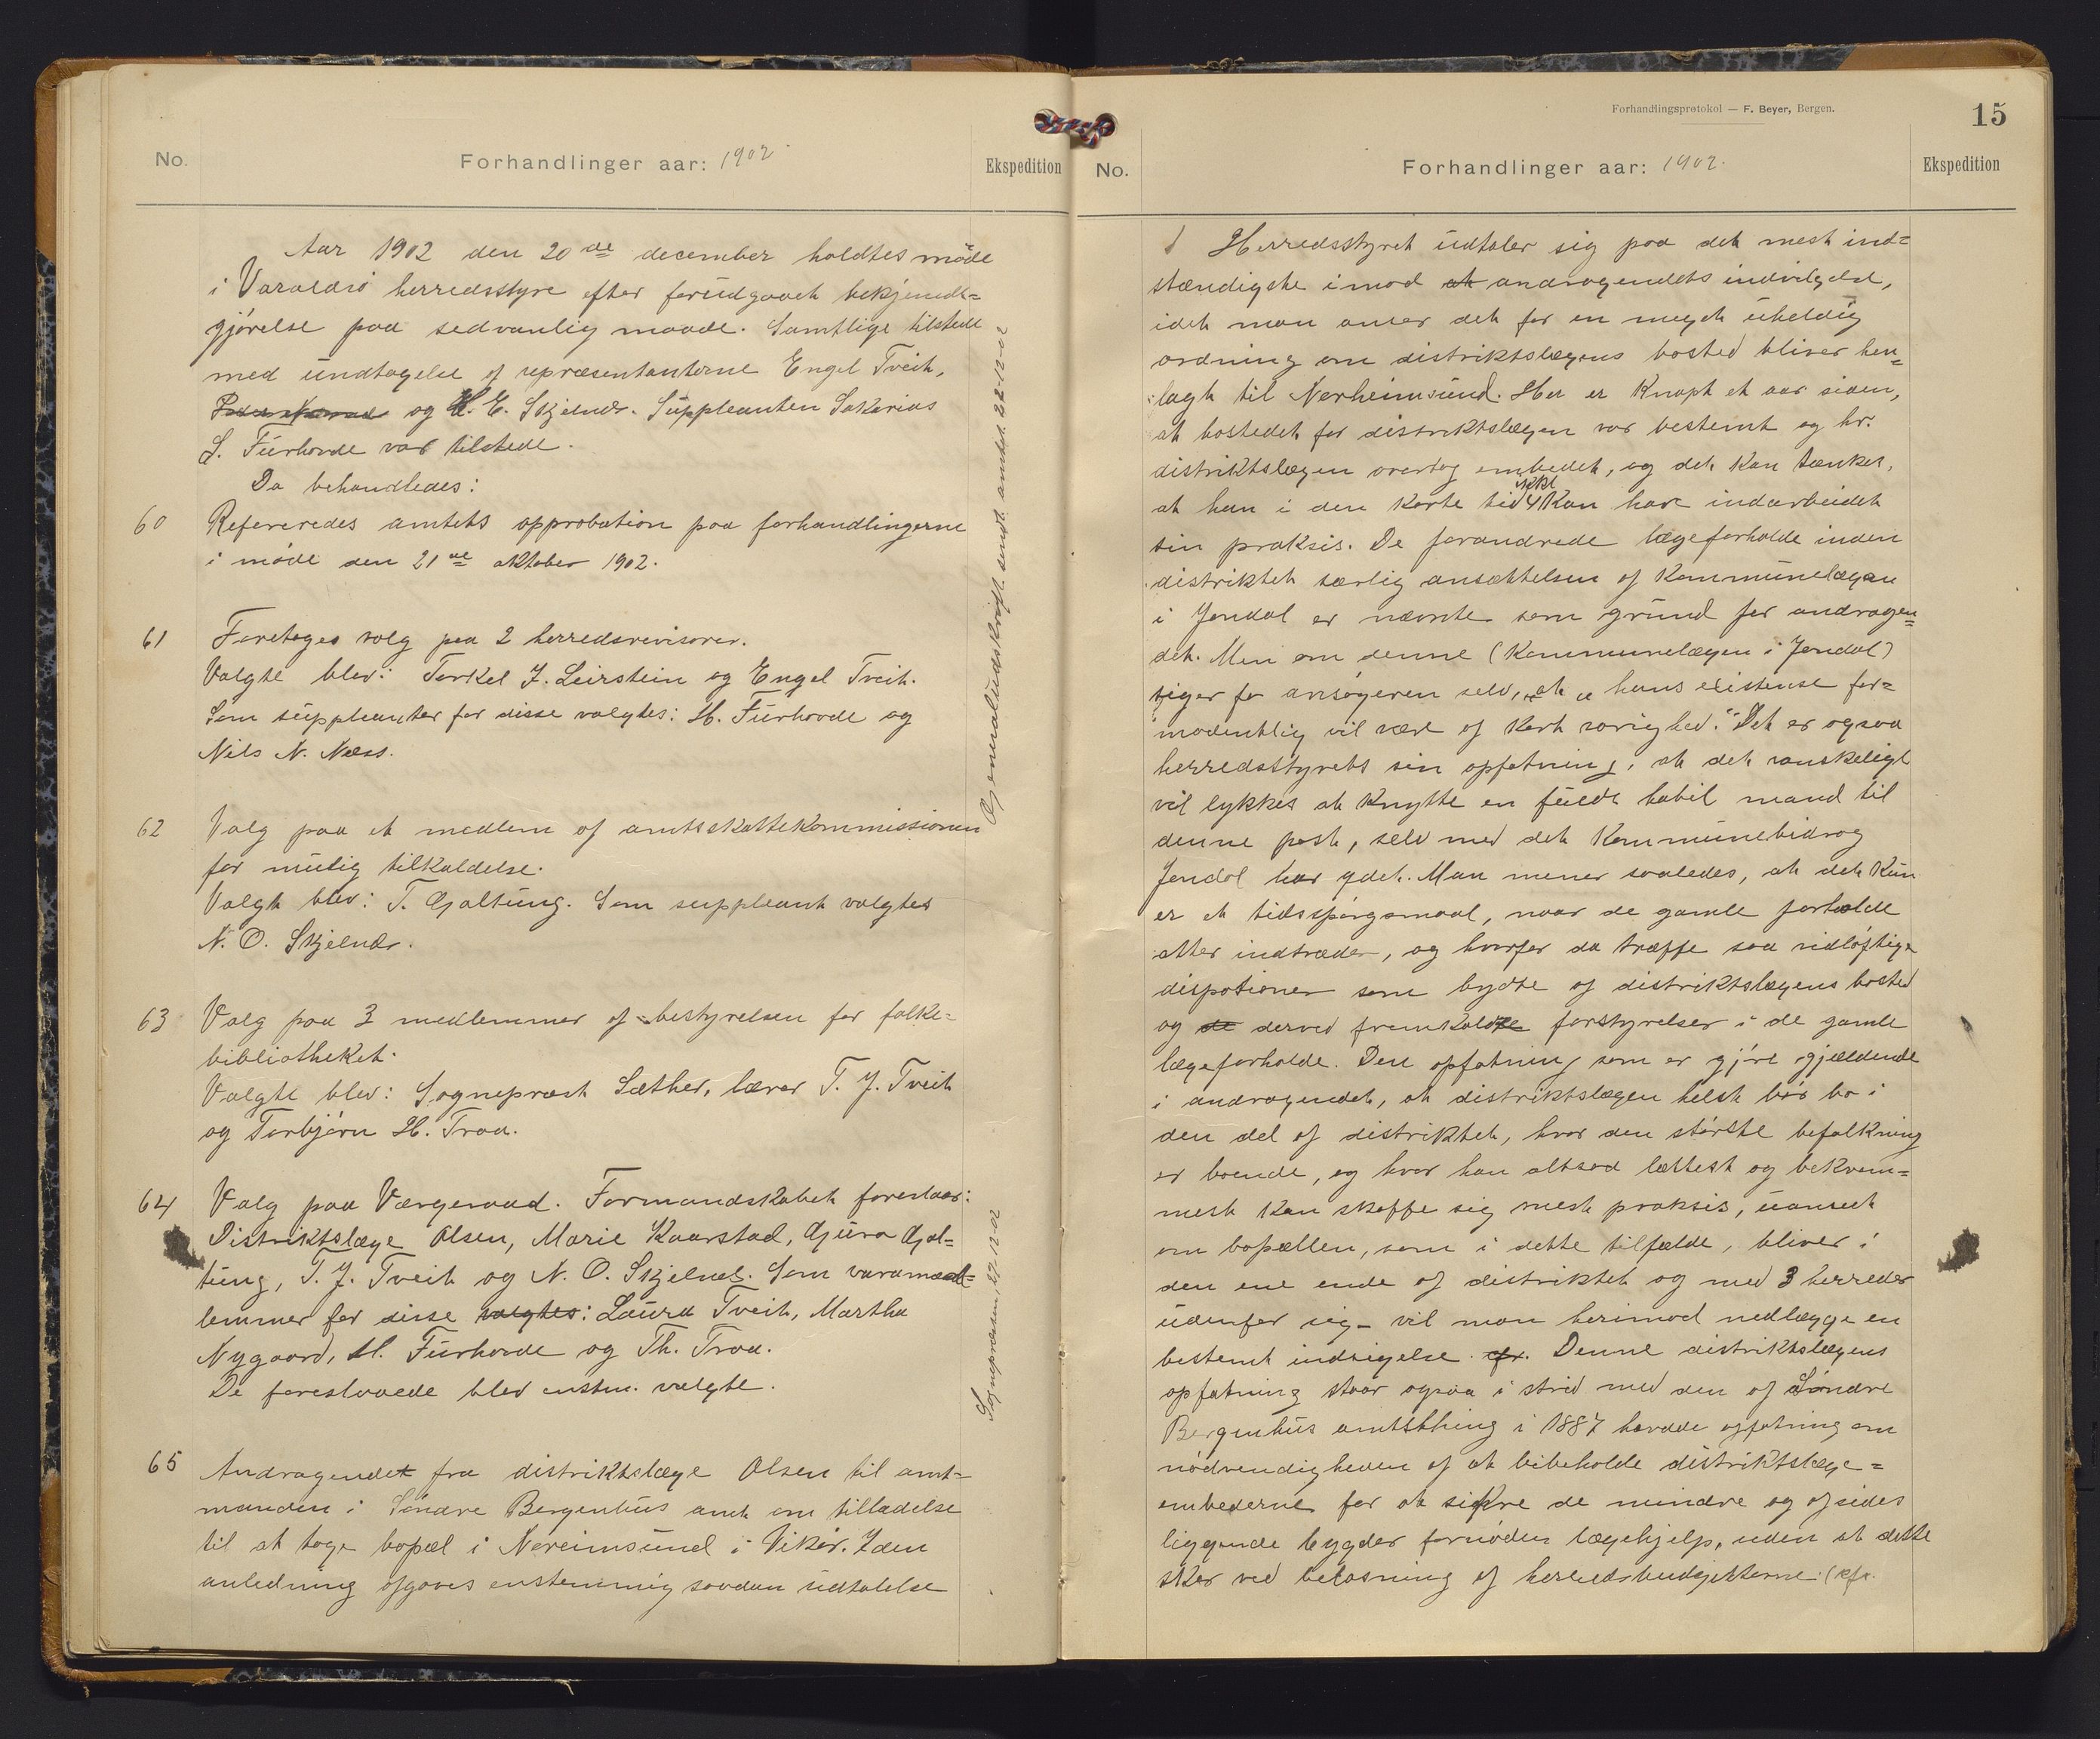 No.
Forhandlinger aar: 1902
Ekspedition
Aar 1902 den 20de december holdtes møde
i Varaldsø herredsstyre efter forudgaaet bekjendt=
gjørelse paa sedvanlig maade. Samtlige tilstede
med undtagelse af repræsentanterne Engel Tveit,
og H. E. Skjelnæs. Suppleanten Sakarias
S. Furhovde var tilstede.
Da behandledes:
60 Refereredes amtets approbation paa forhandlingerne
i møde den 21de oktober 1902.
61 Foretoges valg paa 2 herredsrevisorer.
Valgte blev: Torkel J. Leirstein og Engel Tveit.
Som suppleanter for disse valgtes: H. Furhovde og
Nils N. Næss.
62 Valg paa et medlem af amtsskattekommissionen
for mulig tilkaldelse.
Valgt blev: T. Gjaltung. Som suppleant valgtes
N. O. Skjelnæs.
63 Valg paa 3 medlemmer af bestyrelsen for folke=
bibliotheket.
Valgte blev: Sogneprest Sæther, lærer T. J. Tveit
og Torbjørn H. Traa.
64 Valg paa Værgeraad. Formandskabet foreslaar:
Distriktslæge Olsen, Marie Kaarstad, Gjura Gjal=
tung, T. J. Tveit og N. O. Skjelnæs. Som varamed=
lemmer for disse valgtes: Laura Tveit, Martha
Nygaard, H. Furhovde og Th. Traa.
De foreslaaede blev enstm. valgte.
65 Andragendet fra distriktslæge Olsen til amt=
manden i Søndre Bergenhus amt om tilladelse
til at tage bopæl i Noreimsund i Vikør. I den
anledning afgaves enstemmig saadan udtalelse
Gjenmaludskrift sendt amtet 22-12-02
Sognepræsten 27-12-02
Forhandlingsprotokol — F. Beyer, Bergen.
15
No.
Forhandlinger aar: 1902.
Ekspedition
Herredsstyret udtaler sig paa det mest ind=
stændigste imod at andragendets indvilgelse,
idet man anser det for en meget uheldig
ordning om distriktslægens bosted bliver hen=
lagt til Norheimsund. Her er knapt et aar siden,
at bostedet for distriktslægen var bestemt og hr.
distriktslægen overtog embedet, og det kan tænkes,
at han i den korte tid ikke kan have indarbeidet
sin praksis. De forandrede lægeforholde inden
distriktet særlig ansættelsen af kommunelægen
i Jondal er nævnte som grund for andragen=
det. Men om denne (kommunelægen i Jondal)
siger for ansøgeren selv, at „hans existense for=
modentlig vil være af kort varighed." Det er ogsaa
herredsstyrets sin opfatning, at det vanskeligt
vil lykkes at knytte en fuldt habil mand til
denne post, selv med det kommunebidrag
Jondal har ydet. Man mener saaledes, at det kun
er et tidsspørgsmaal, naar de gamle forholde
atter indtræder, og hvorfor da træffe saa vidløftige
dispotioner som bytte af distriktslægens bosted
og de derved fremkaldte forstyrrelser i de gamle
lægeforholde. Den opfatning som er gjort gjældende
i andragendet, at distriktslægen helst bør bo i
den del af distriktet, hvor den største befolkning
er boende, og hvor han altsaa lettest og bekvem=
mest kan skaffe sig mest praksis, uanseet
om bopællen, som i dette tilfælde, bliver i
den ene ende af distriktet og med 3 herreder
udenfor sig – vil man herimod nedlægge en
bestemt indsigelse. Denne distriktslægens
opfatning staar ogsaa i strid med den af Søndre
Bergenhus amtsthing i 1887 hævdede opfatning om
nødvendigheden af at bibeholde distriktslæge=
embederne for at sikre de mindre og afsides
liggende bygder fornøden lægehjelp, uden at dette
sker ved belastning af herredsbudgetterne (cfr.